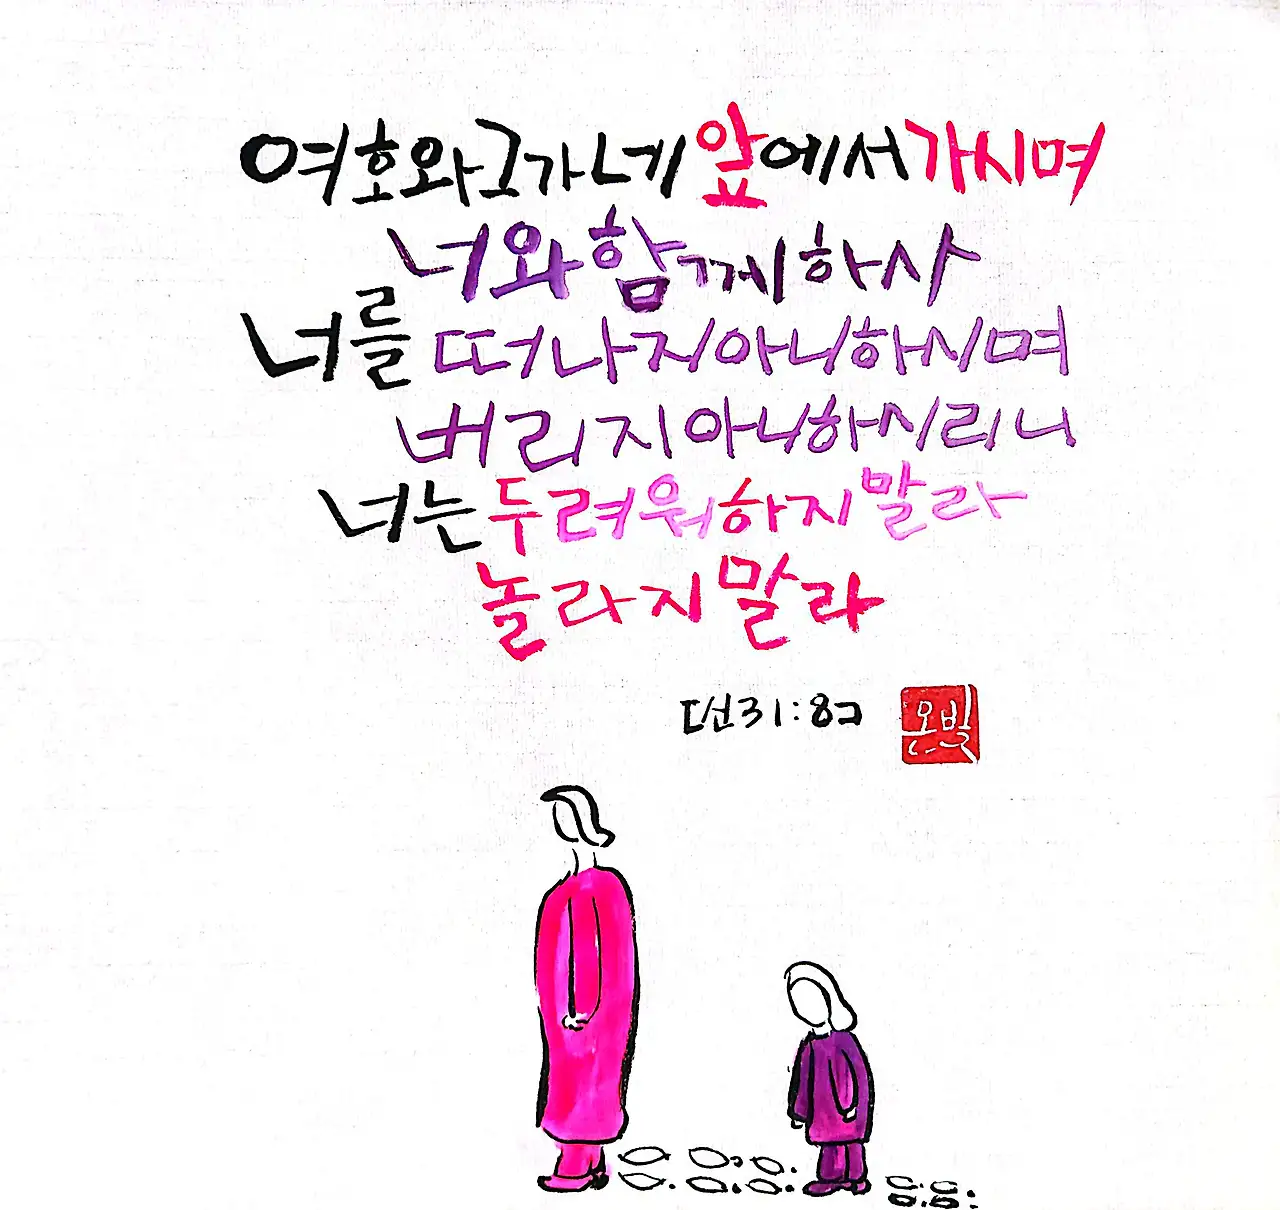 여호와 그가 네 앞에서 가시며
너와 함께하사
너를 떠나지 아니하시며
버리지 아니하시리니
너는 두려워하지 말라
놀라지 말라
[신31:8]
온빛